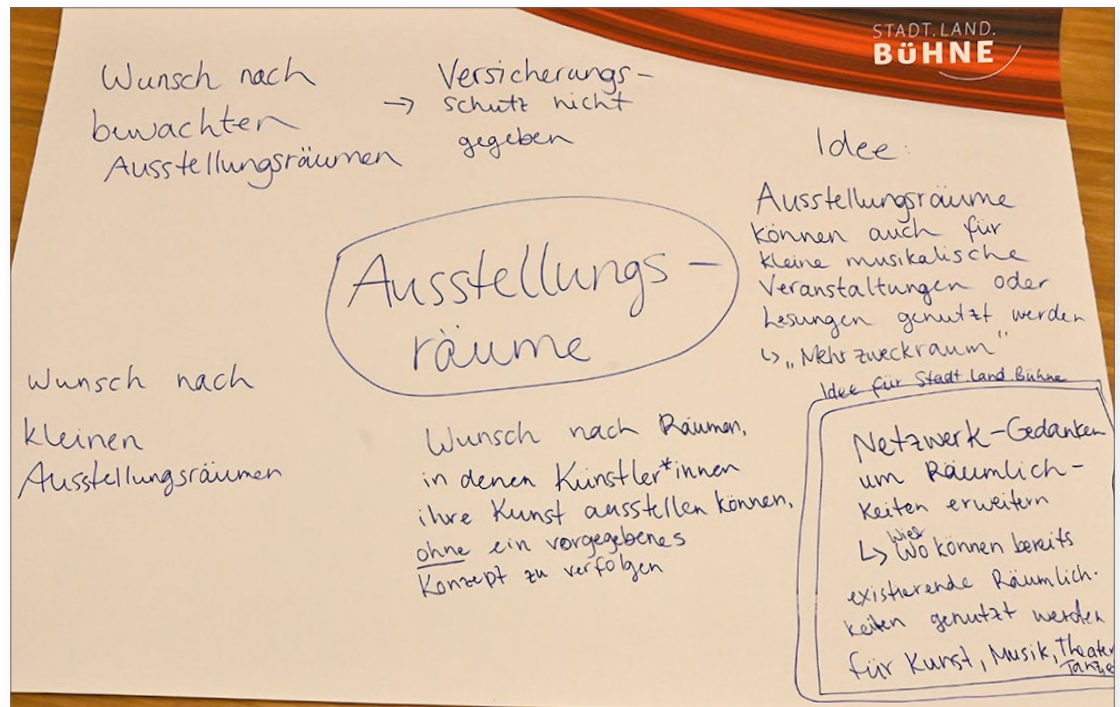 STADT.LAND.
BÜHNE
Wunsch nach
bewachten
Ausstellungsräumen
→ Versicherungs-
schutz nicht
gegeben
Idee:
Ausstellungsräume
können auch für
kleine musikalische
Veranstaltungen oder
Lesungen genutzt werden
↳ „Mehrzweckraum"
Ausstellungs-
räume
Wunsch nach
kleinen
Ausstellungsräumen
Wunsch nach Räumen,
in denen Künstler*innen
ihre Kunst ausstellen können,
ohne ein vorgegebenes
Konzept zu verfolgen
Idee für Stadt.Land.Bühne
Netzwerk-Gedanken
um Räumlich-
keiten erweitern
↳ Wo können bereits
existierende Räumlich-
keiten genutzt werden
für Kunst, Musik, Theater